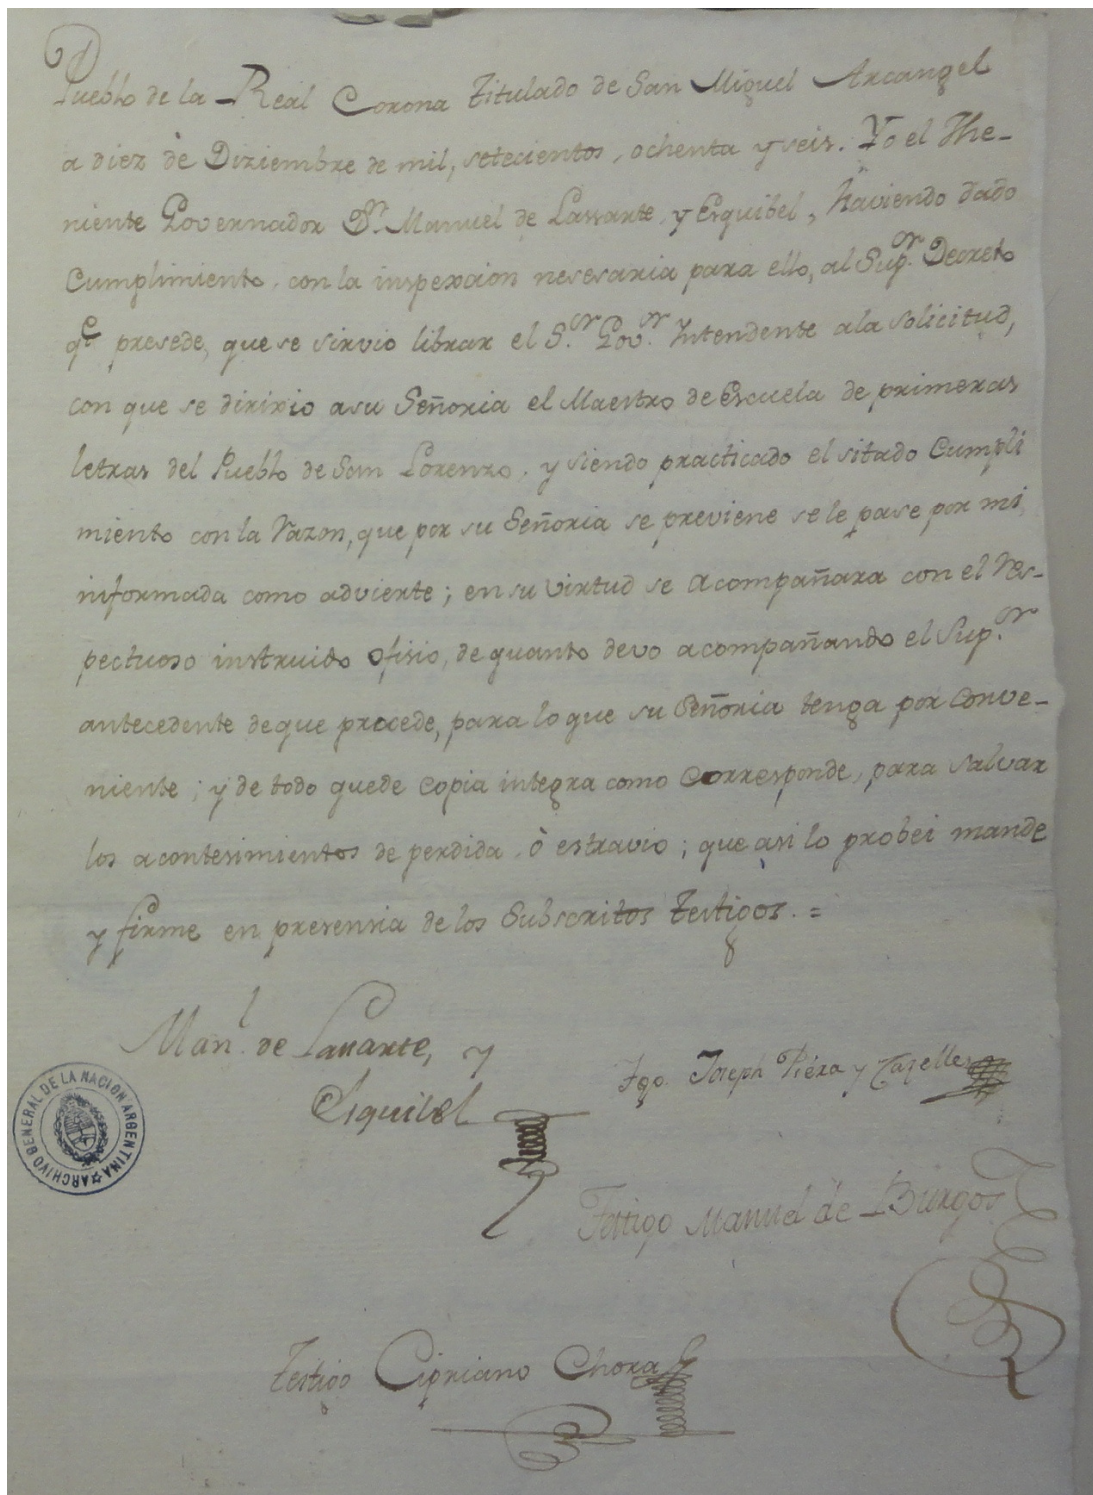 Pueblo de la Real Corona titulado de San Miguel Arcangel
a diez de Diziembre de mil, setecientos, ochenta y seis. Yo el The-
niente Governador Dn. Manuel de Lasarte, y Esquibel, haviendo dado
Cumplimiento, con la inspexcion nesesaria para ello, al Supor. Decreto
qe. presede, que se sirvio librar el Sor. Govor. Intendente ala solicitud,
con que se dirixio asu Señoria el Maestro de Escuela de primeras
letras del Pueblo de San Lorenzo, y siendo practicado el sitado Cumpli
miento con la razon, que por su Señoria se previene se le pase por mi
informada como advierte; en su virtud se acompañara con el res-
pectuoso instruido ofisio, de quanto devo acompañando el Supor.
antecedente deque procede, para lo que su Señoria tenga por conve-
niente; y de todo quede copia integra como corresponde, para salvar
los acontesimientos de perdida, ò estravio; que asi lo probei mande
y firme en presensia de los Subscritos testigos. =
Manl. de Lasarte, y
Esquibel
Tgo. Joseph Piera y
Testigo Manuel de Burgos
Testigo Cipriano Chora
ARCHIVO GENERAL DE LA NACION ARGENTINA